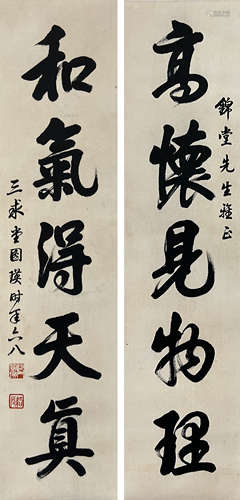 高懷見物理
錦堂先生雅正
和氣得天真
三求堂圓瑛時年六八